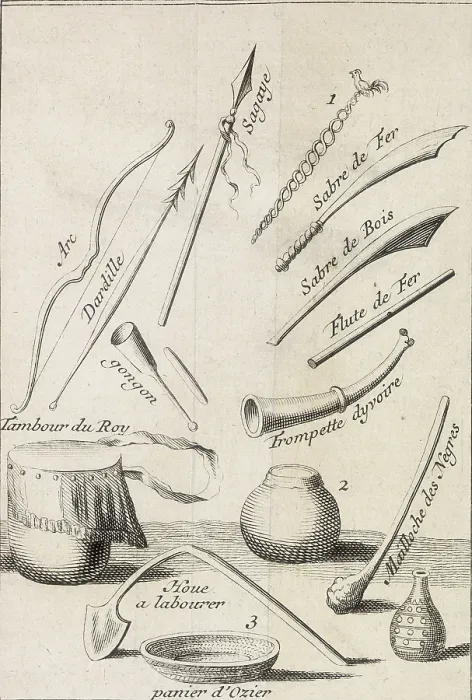 Sagaye
1
Sabre de Fer
Arc
Dardille
Sabre de Bois
Flute de Fer
gongon
Trompette dyvoire
Tambour du Roy
2
Malloche des Negres
Houe
a labourer
3
panier d'Ozier